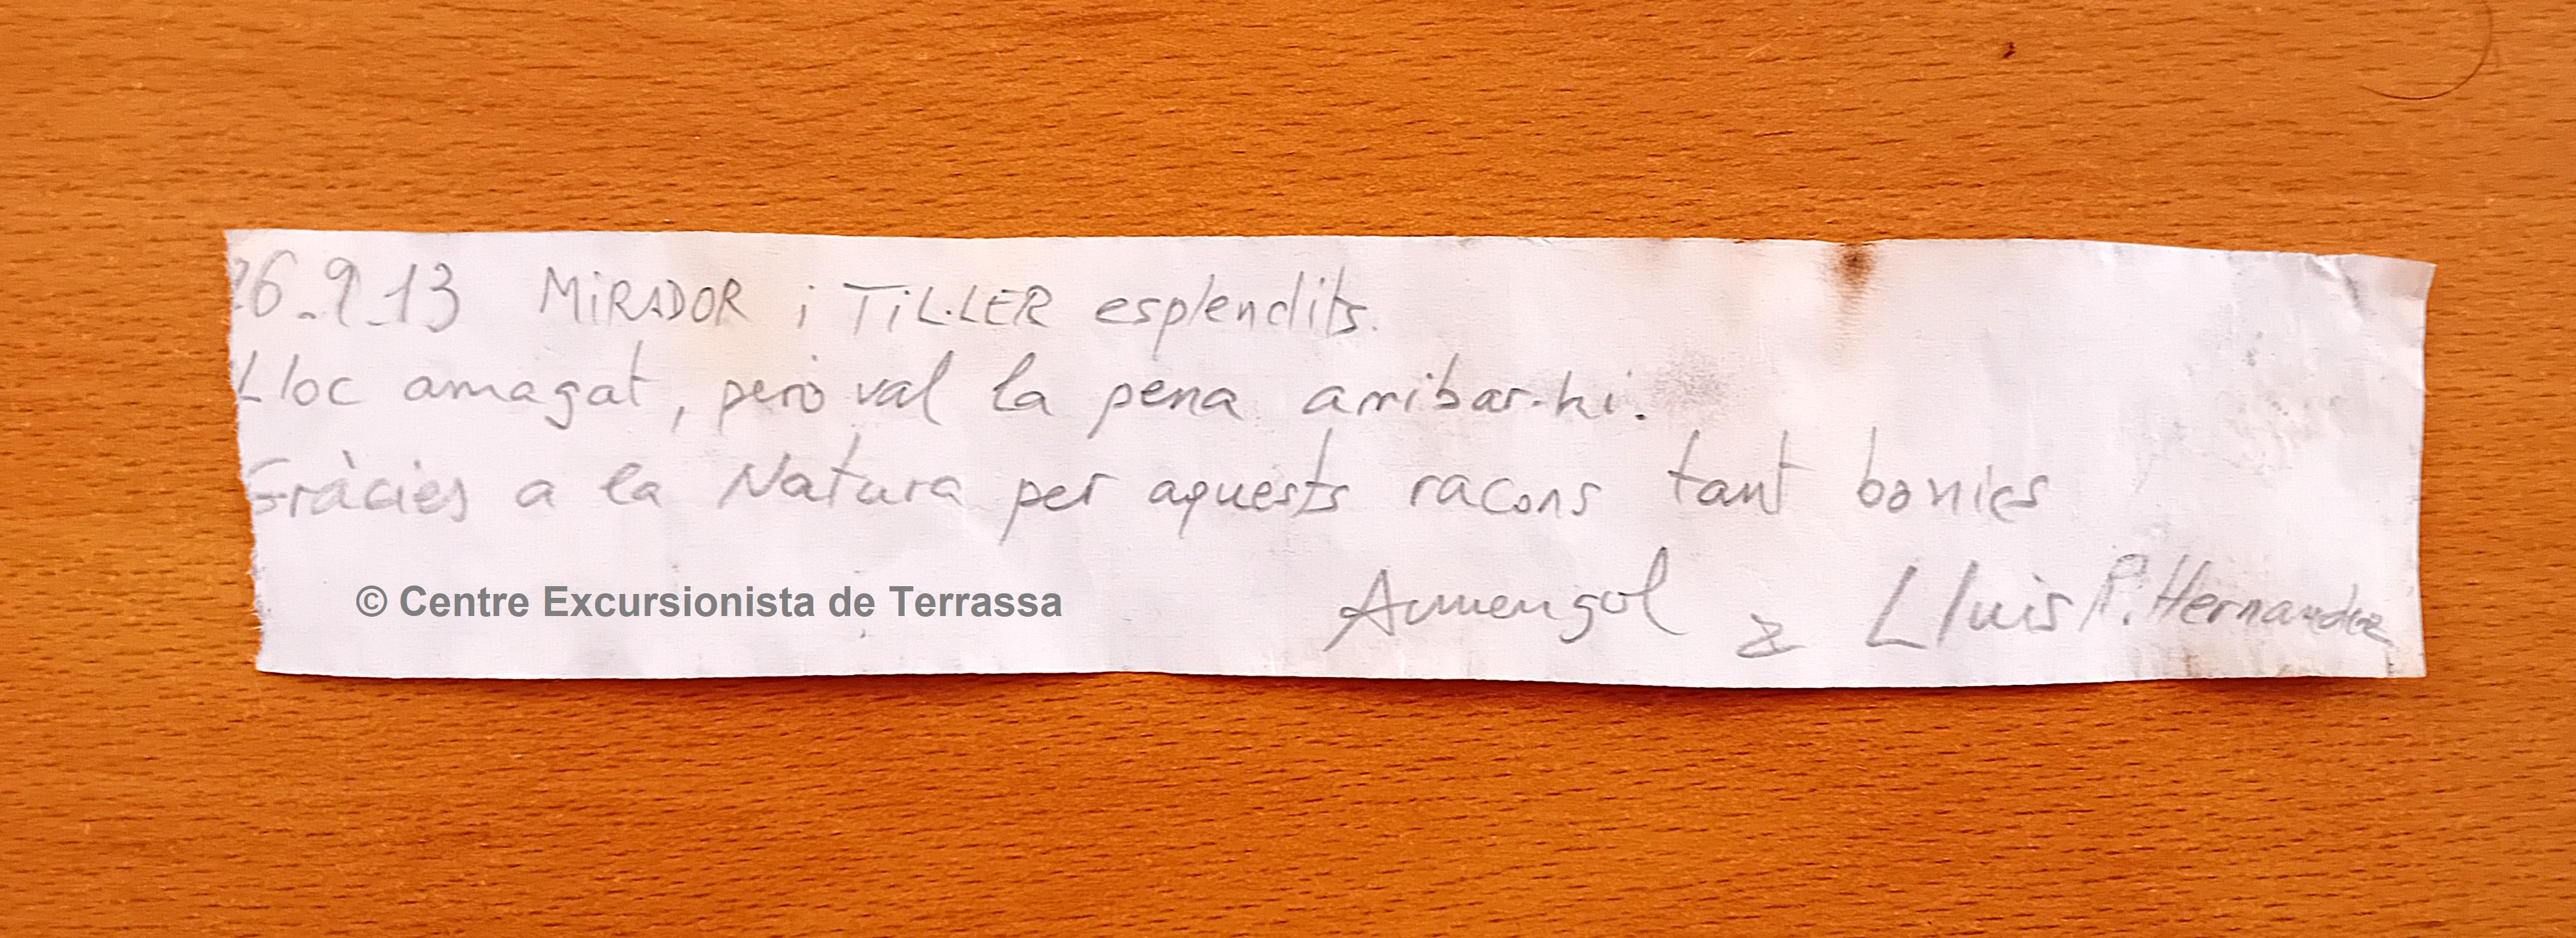 26-9-13 MiRADOR i TiL·LER esplendits.
Lloc amagat, però val la pena arribar-hi.
Gràcies a la Natura per aquests racons tant bonics
Armengol & Lluis P. Hernandez
© Centre Excursionista de Terrassa